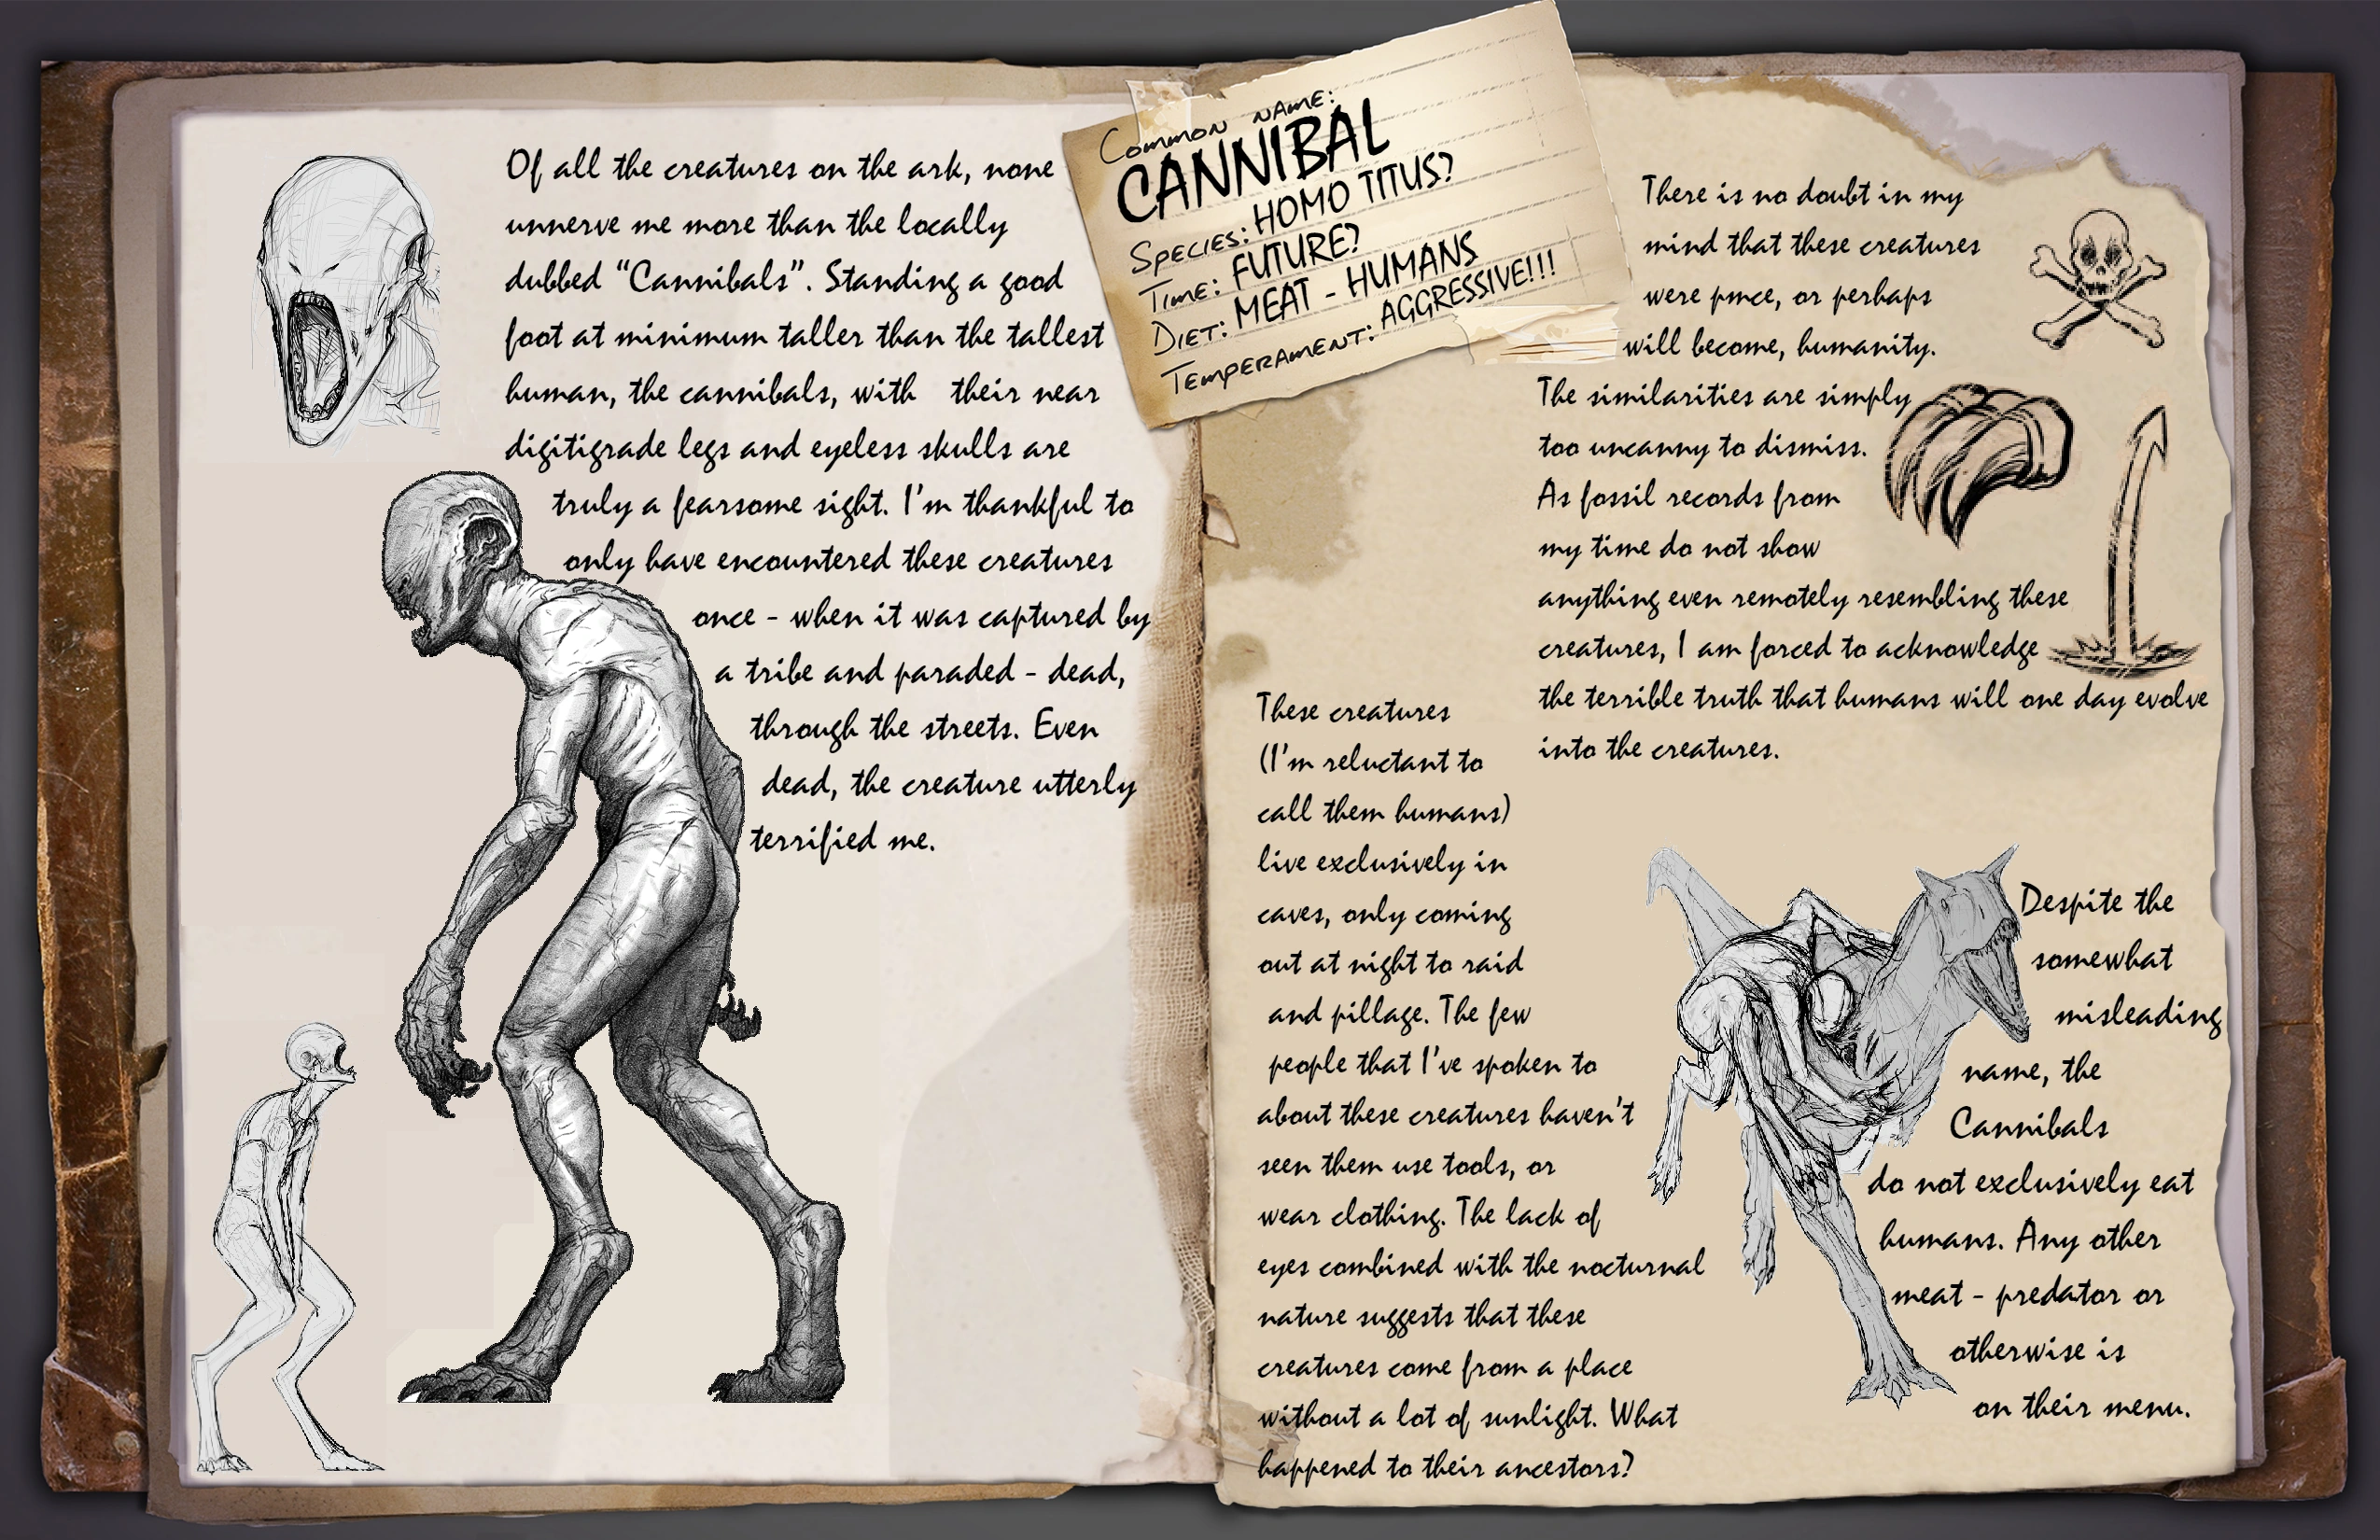 Of all the creatures on the ark, none
unnerve me more than the locally
dubbed "Cannibals". Standing a good
foot at minimum taller than the tallest
human, the cannibals, with their near
digitigrade legs and eyeless skulls are
truly a fearsome sight. I'm thankful to
only have encountered these creatures
once - when it was captured by
a tribe and paraded - dead,
through the streets. Even
dead, the creature utterly
terrified me.
Common name:
CANNIBAL
Species: HOMO TITUS?
Time: FUTURE?
Diet: MEAT - HUMANS
Temperament: AGGRESSIVE!!!
There is no doubt in my
mind that these creatures
were pnce, or perhaps
will become, humanity.
The similarities are simply
too uncanny to dismiss.
As fossil records from
my time do not show
anything even remotely resembling these
creatures, I am forced to acknowledge
the terrible truth that humans will one day evolve
into the creatures.
These creatures
(I'm reluctant to
call them humans)
live exclusively in
caves, only coming
out at night to raid
and pillage. The few
people that I've spoken to
about these creatures haven't
seen them use tools, or
wear clothing. The lack of
eyes combined with the nocturnal
nature suggests that these
creatures come from a place
without a lot of sunlight. What
happened to their ancestors?
Despite the
somewhat
misleading
name, the
Cannibals
do not exclusively eat
humans. Any other
meat - predator or
otherwise is
on their menu.